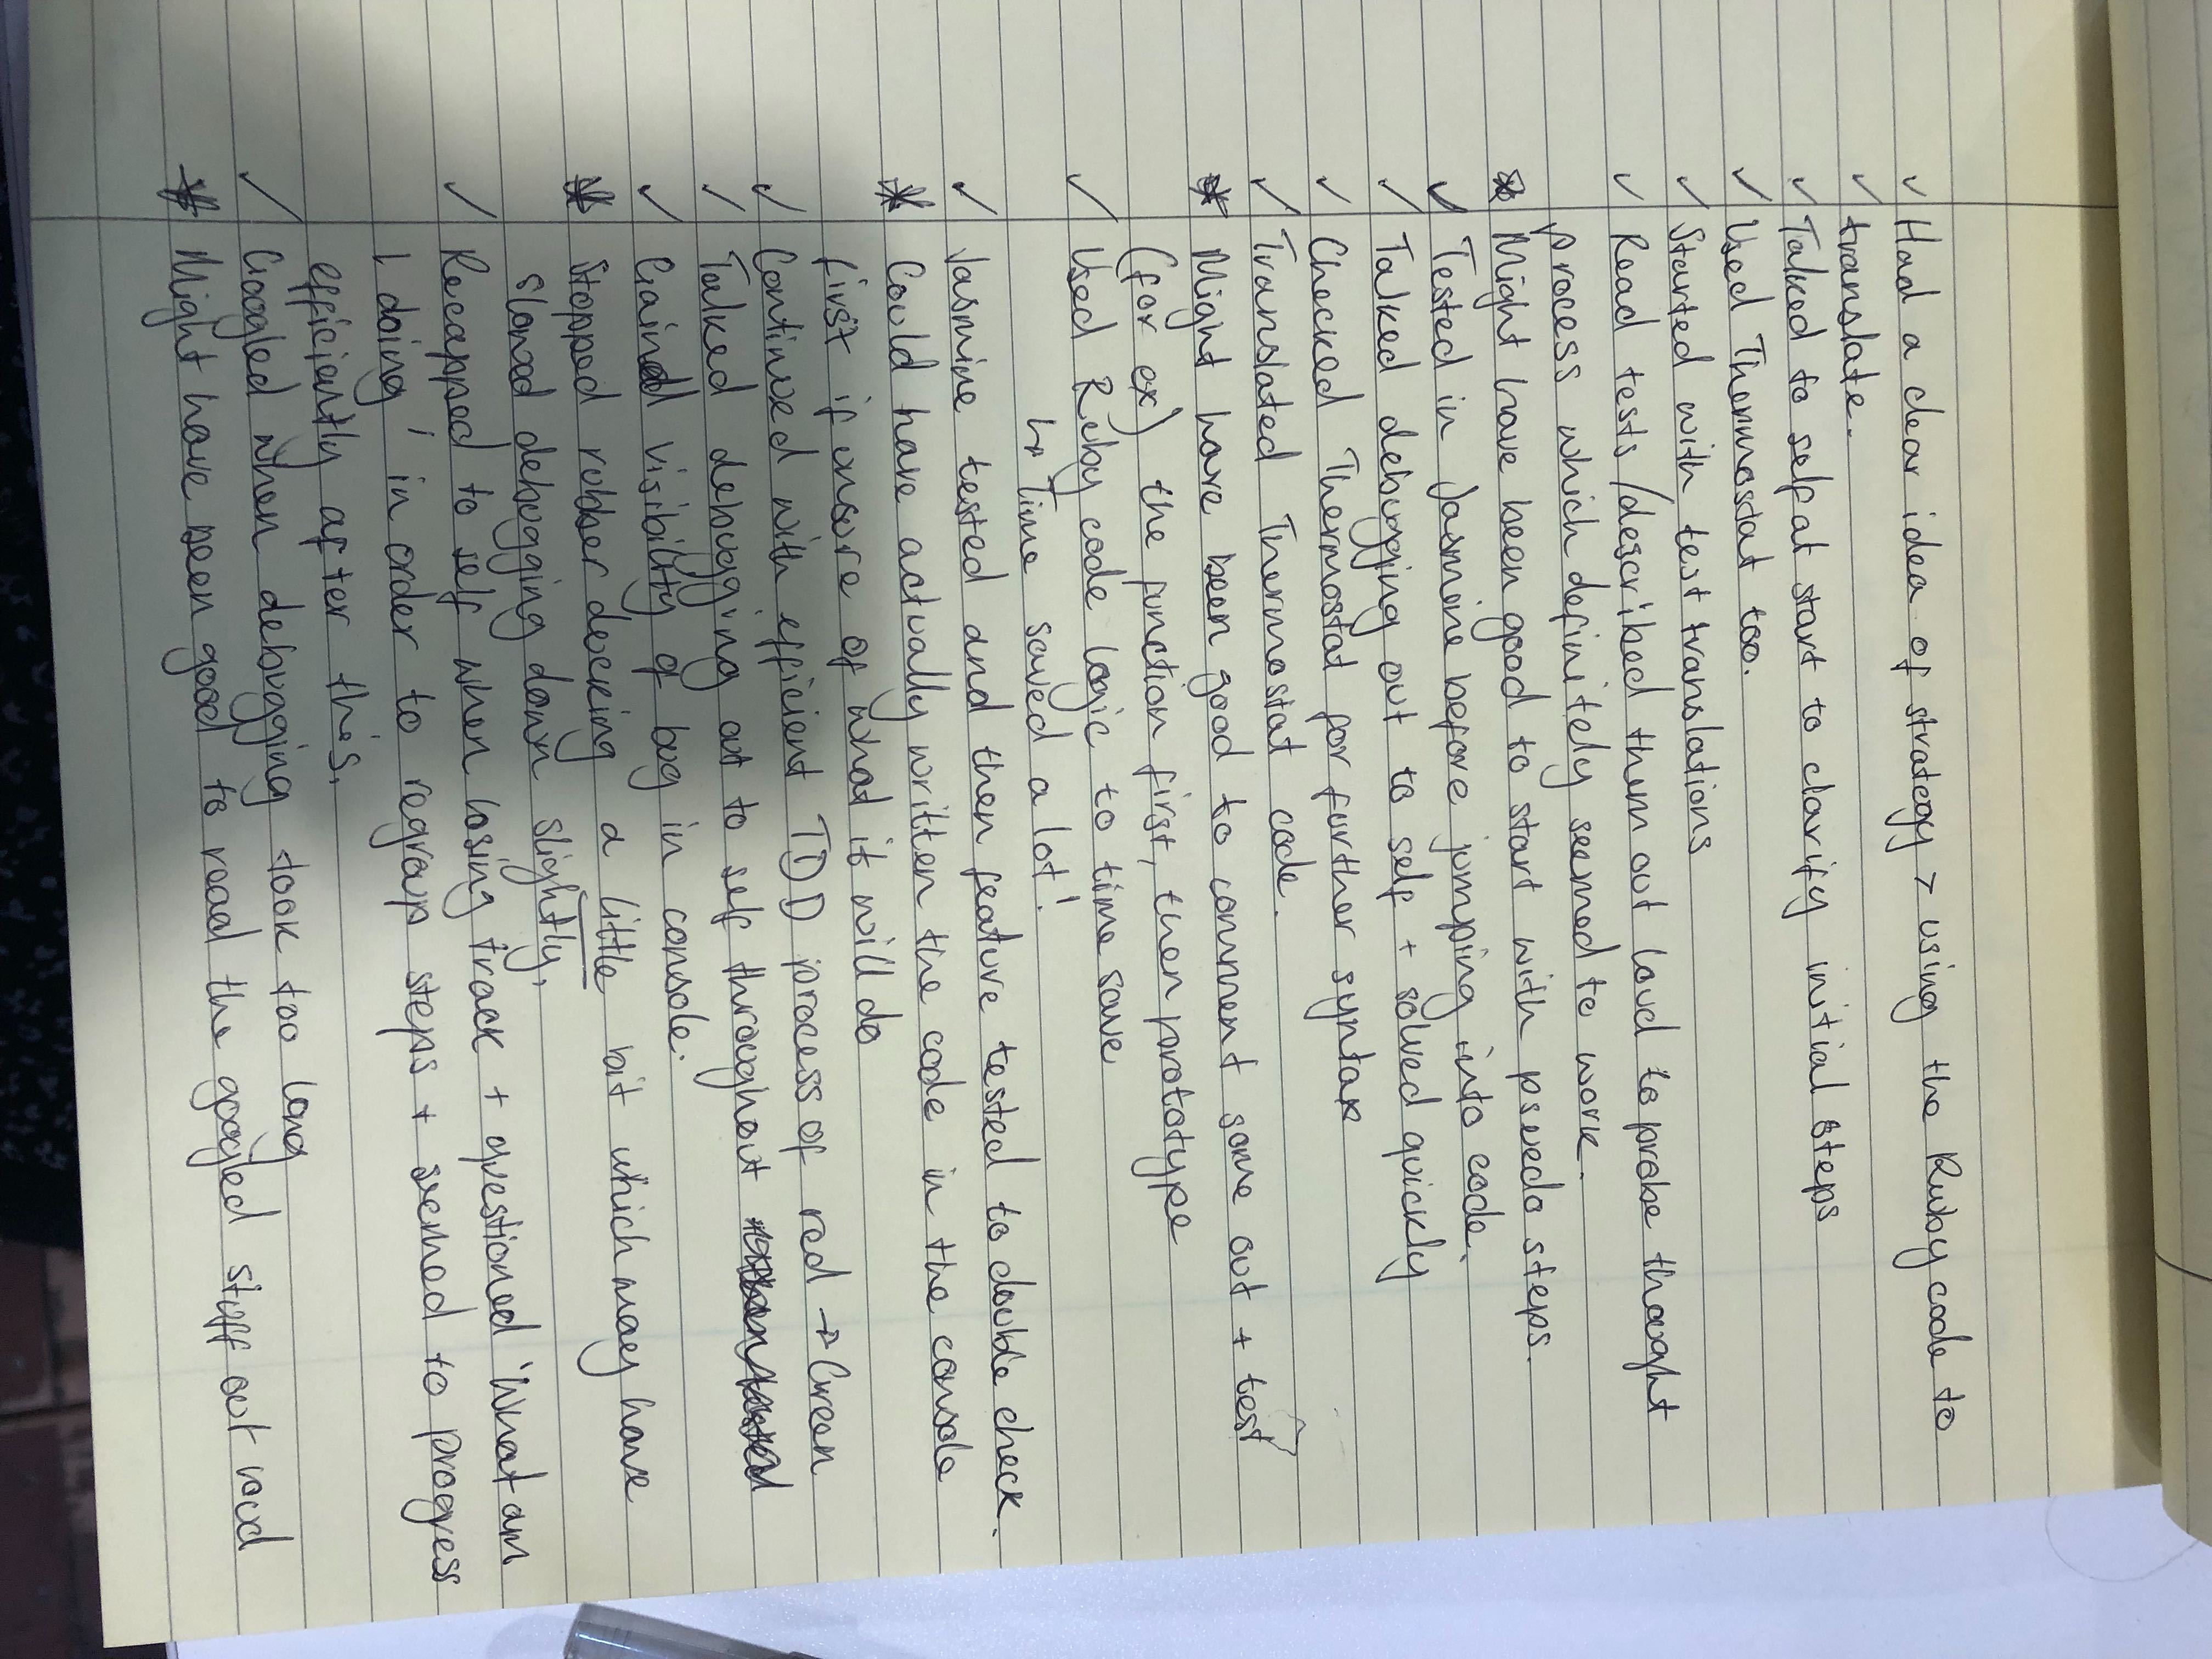 ✓ Had a clear idea of strategy > using the Ruby code to
✓ translate.
✓ Talked to self at start to clarify initial steps
✓ Used Thermostat too.
✓ Started with test translations
✓ Read tests/described them out loud to probe thought
process which definitely seemed to work.
* Might have been good to start with pseudo steps.
✓ Tested in Jasmine before jumping into code.
✓ Talked debugging out to self + solved quickly
✓ Checked Thermostat for further syntax
✓ Translated Thermostat code.
* Might have been good to comment some out + test
(for ex) the function first, then prototype
✓ Used Ruby code logic to time save
↳ Time saved a lot!
✓ Jasmine tested and then feature tested to double check.
* Could have actually written the code in the console
first if unsure of what it will do
✓ Continued with efficient TDD process of red → Green
✓ Talked debugging out to self throughout
✓ Gained visibility of bug in console.
* Stopped rubber ducking a little bit which may have
slowed debugging down slightly,
✓ Recapped to self when losing track + questioned 'What am
I doing' in order to regrasp steps + seemed to progress
efficiently after this.
✓ Googled when debugging took too long
* Might have been good to read the googled stuff out loud